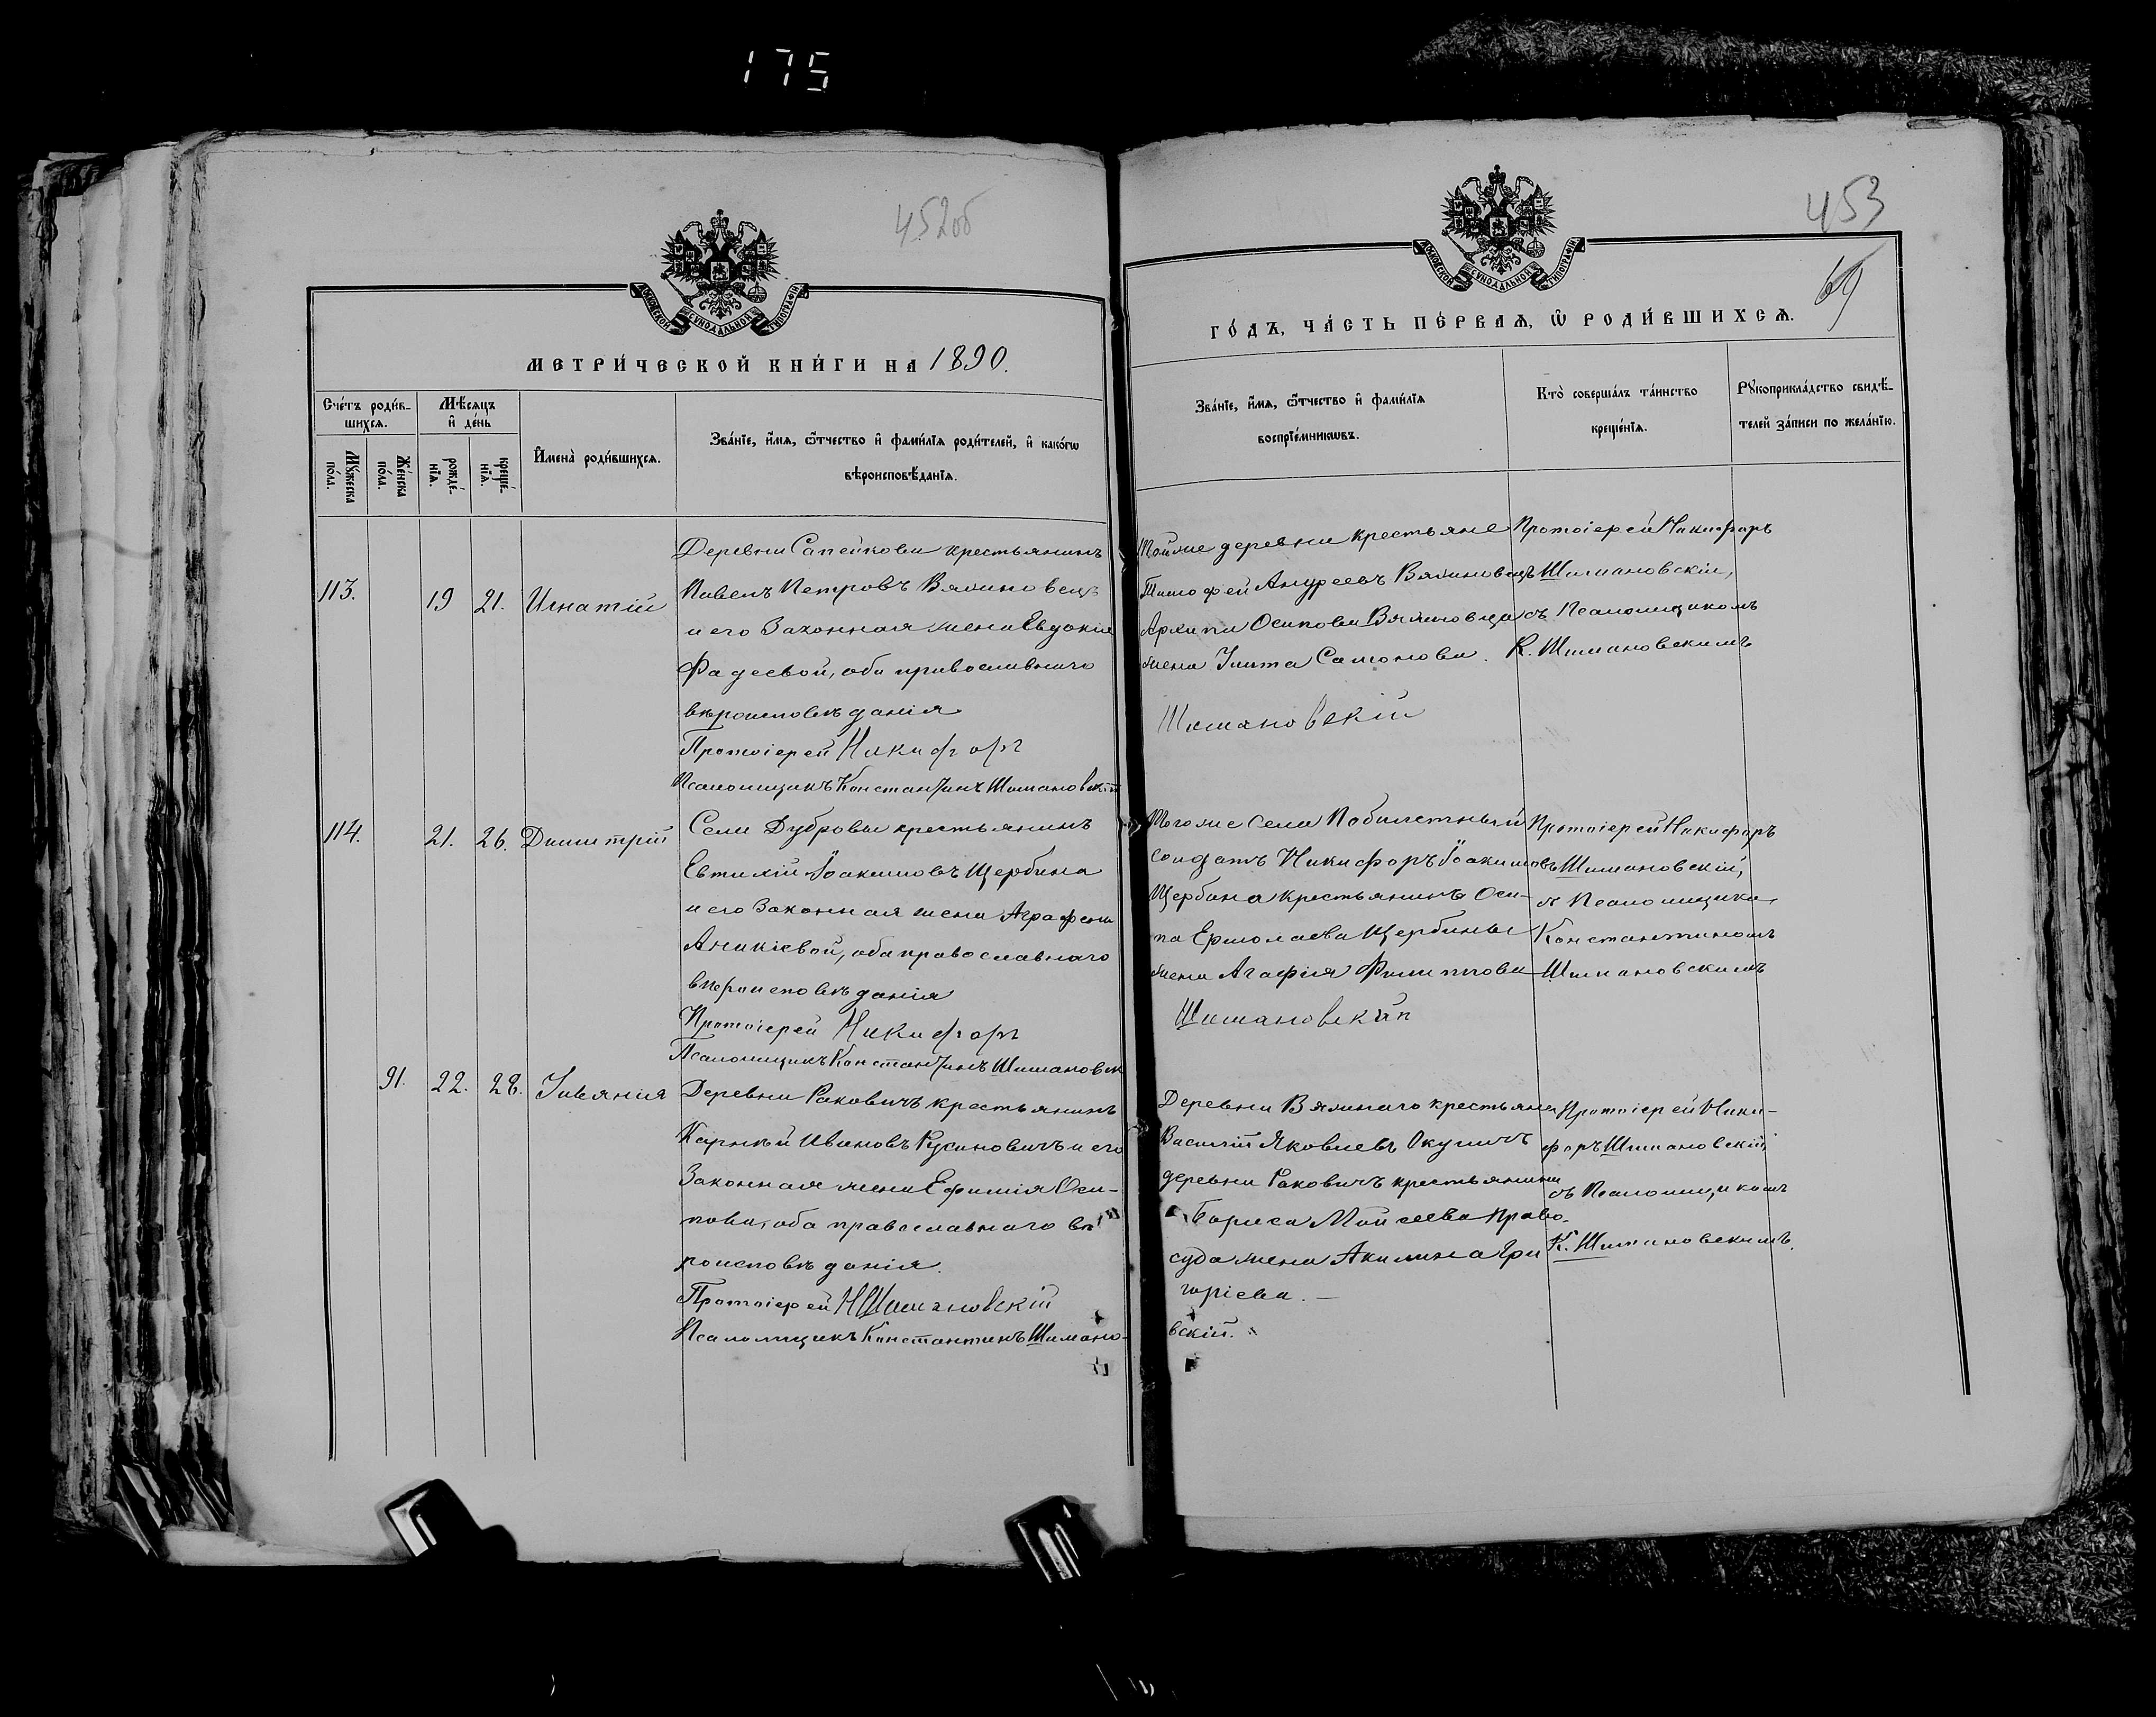 175
452об
МОСКОВСКОЙ СѴНОДАЛЬНОЙ ТИПОГРАФІИ
МЕТРИ́ЧЕСКОЙ КНИ́ГИ НА 1890.
Сче́тъ роди́в-
шихсѧ.
Мꙋ́жеска
по́ла.
Же́нска
по́ла.
Мѣ́сѧцъ
и҆ де́нь
рожде́-
нїѧ.
креще́-
нїѧ.
И҆мена̀ роди́вшихсѧ.
Зва́нїе, и҆́мѧ, ѻ҆́тчество и҆ фами́лїѧ роди́телей, и҆ како́гѡ
вѣроисповѣ́данїѧ.
113.
19
21.
Игнатій
Деревни Сапейкова крестьянинъ
Павелъ Петровъ Вяжновецъ
и его Законная жена Евдокія
Фадеевой, оба православнаго
вѣроисповѣданія
Протоіерей Никифоръ
Псаломщикъ Константинъ Шимановскій
114.
21.
26.
Димитрій
Села Дубровы крестьянинъ
Евтихій Іоакимовъ Щербина
и его Законная жена Аграфена
Аникіевой, оба православнаго
вѣроисповѣданія
Протоіерей Никифоръ
Псаломщикъ Константинъ Шимановск
91.
22.
28.
Іуліанія
Деревни Раковичъ крестьянинъ
Карнѣй Ивановъ Русиновичъ и его
Законная жена Ефимія Оси-
пова, оба православнаго вѣ
роисповѣданія.
Протоіерей Н Шимановскій
Псаломщикъ Константинъ Шимано-
453
69
МОСКОВСКОЙ СѴНОДАЛЬНОЙ ТИПОГРАФІИ
ГО́ДЪ, ЧА́СТЬ ПЕ́РВАѦ, Ѡ҆ РОДИ́ВШИХСѦ.
Зва́нїе, и҆́мѧ, ѻ҆́тчество и҆ фами́лїѧ
воспрїе́мникѡвъ.
Кто̀ соверша́лъ та́инство
креще́нїѧ.
Рꙋкоприкла́дство свидѣ́-
телей за́писи по жела́нїю.
Той же деревни крестьяне
Тимофей Андреевъ Вяжновецъ
Архипа Осипова Вяжновца
жена Улита Самонова.
Шимановскій
Протоіерей Никифоръ
Шимановскій,
съ Псаломщикомъ
К. Шимановскимъ
Того же Села Побилетный
солдатъ Никифоръ Іоакимовъ
Щербина крестьянинъ Оси-
па Ермолаева Щербины
жена Агафія Филиппова
Шимановскій
Протоіерей Никифоръ
Шимановскій,
съ Псаломщика,
Константиномъ
Шимановскимъ
Деревни Вяжнаго крестьяне
Василій Яковлевъ Окуличъ
деревни Раковичъ крестьянина
Бориса Мойсеева Право-
суда жена Акилина Гри
горіева. —
вскій.
Протоіерей Ники-
форъ Шимановскій,
съ Псаломщикомъ
К. Шимановскимъ.